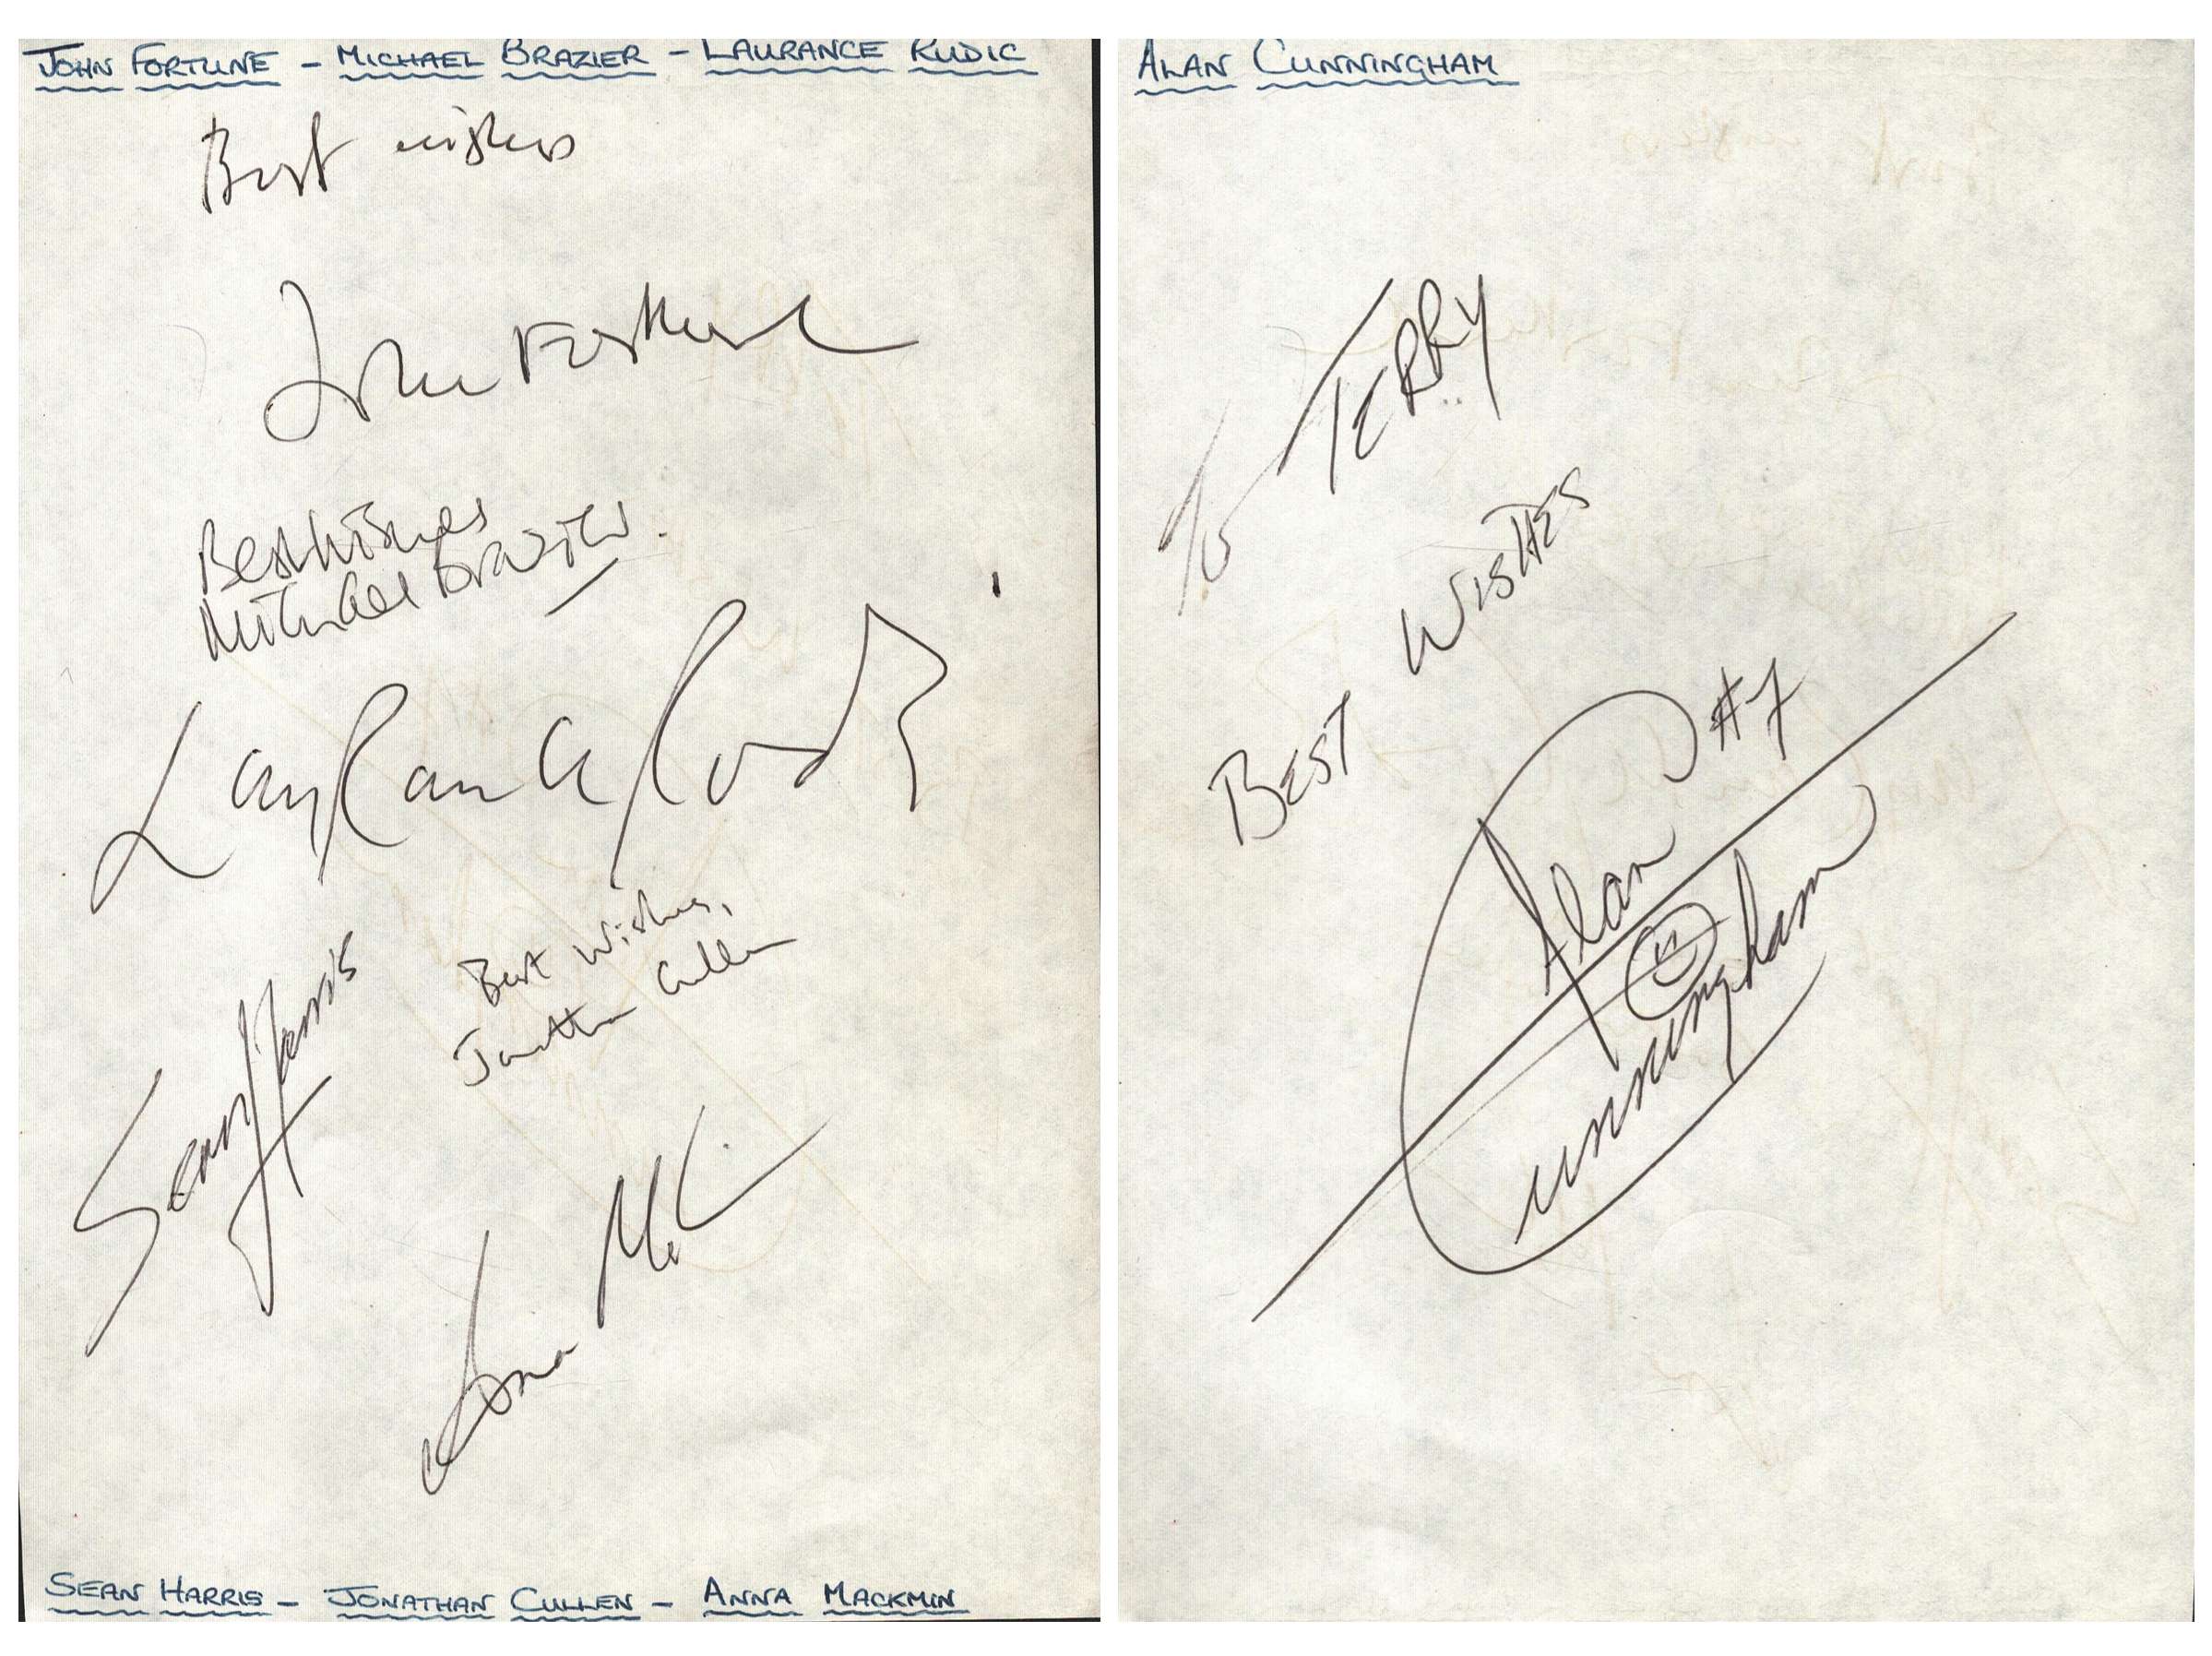 JOHN FORTUNE - MICHAEL BRAZIER - LAURANCE RUDIC
Best wishes
John Fortune
Best Wishes
Michael Brazier.
Laurance Rudic
Sean Harris
Best Wishes,
Jonathan Cullen
Anna
SEAN HARRIS - JONATHAN CULLEN - ANNA MACKMIN
ALAN CUNNINGHAM
To TERRY
BEST WISHES
#7
Alan
Cunningham